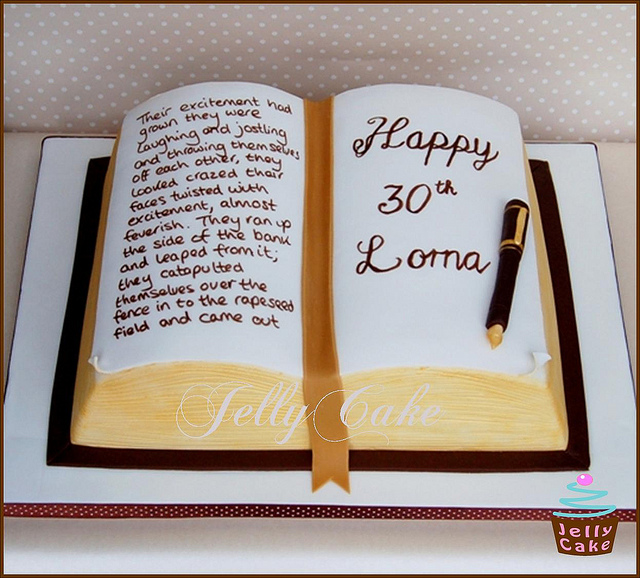 Their excitement had
grown they were
laughing and jostling
and throwing themselves
off each other, they
looked crazed their
faces twisted with
excitement, almost
feverish. They ran up
the side of the bank
and leaped from it;
they catapulted
themselves over the
fence in to the rapeseed
field and came out
Happy
30th
Lorna
Jelly Cake
Jelly
Cake